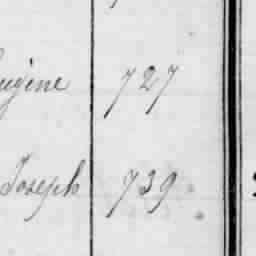 Eugène 727
Joseph 739